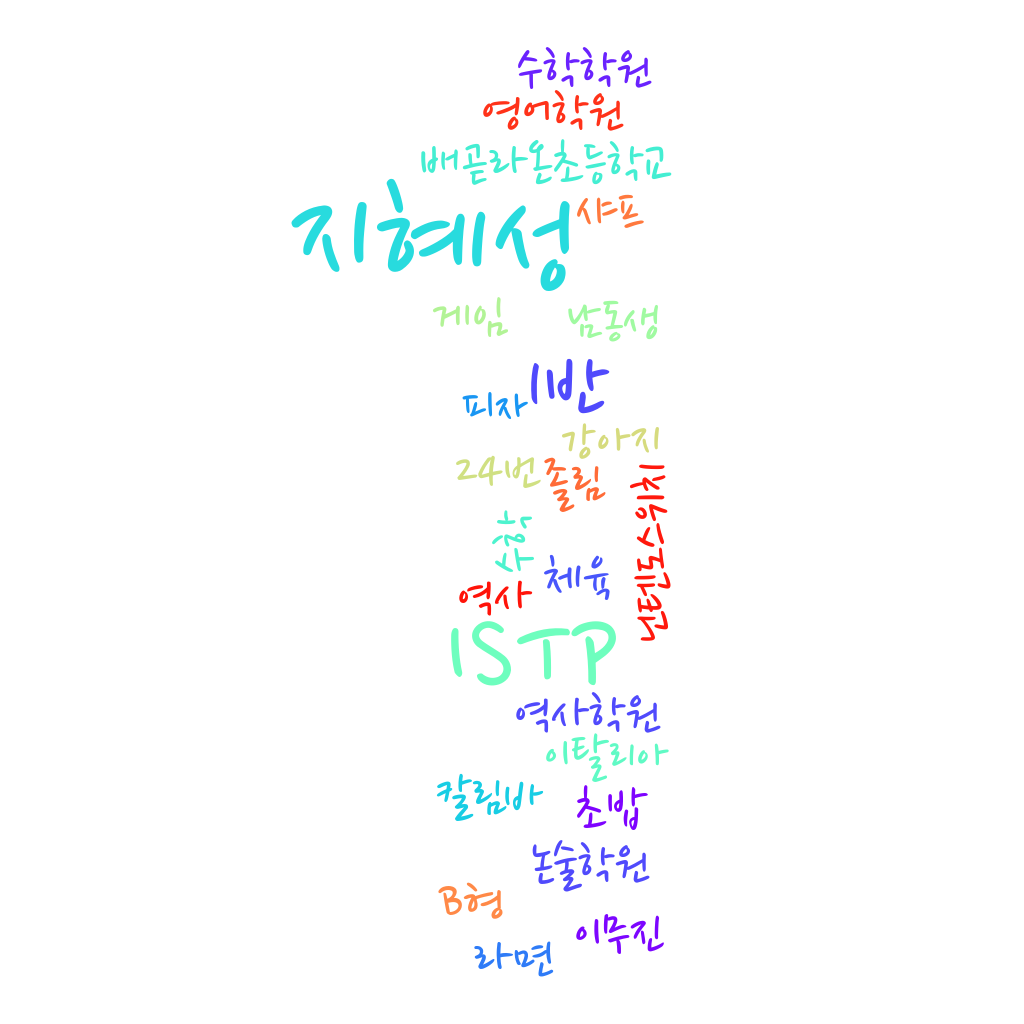 수학학원
영어학원
배곧라온초등학교
지혜성
샤프
게임
남동생
1반
피자
강아지
24번
졸림
닌텐도스위치
수학
체육
역사
ISTP
역사학원
이탈리아
칼림바
초밥
논술학원
B형
이무진
라면